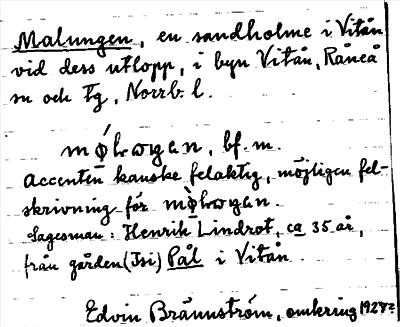 Malungen, en sandholme i Vitån
vid dess utlopp, i byn Vitån, Råneå
sn och tg, Norrb. l.
bf. m.
Accenten kanske felaktig, möjligen fel-
skrivning för
Sagesman: Henrik Lindrot, ca 35 år,
från gården (Isi) Pål i Vitån
Edvin Brännström, omkring 1927?